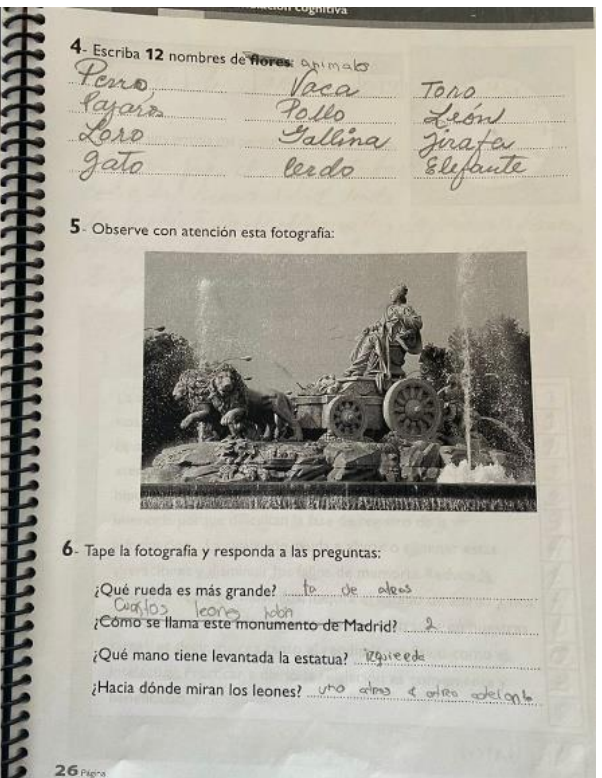 Estimulación Cognitiva
4- Escriba 12 nombres de flores: animales
Perro Vaca Toro
Pajaros Pollo León
Loro Gallina Jirafa
gato Cerdo Elefante
5- Observe con atención esta fotografía:
6- Tape la fotografía y responda a las preguntas:
¿Qué rueda es más grande? la de atras
Cuantos leones habn
¿Cómo se llama este monumento de Madrid? 2
¿Qué mano tiene levantada la estatua? izquieeda
¿Hacia dónde miran los leones? uno atras y otreo adelante
26 Página